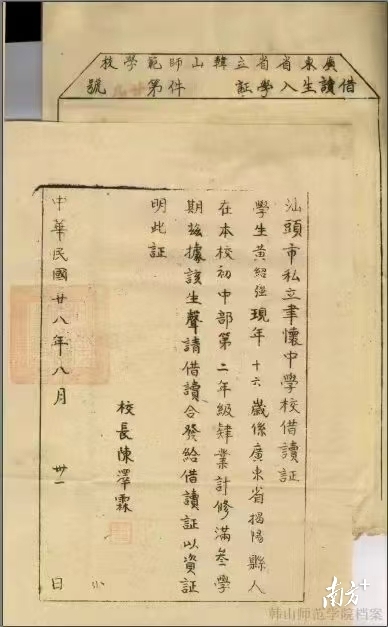 廣東省省立韓山師範學校
借讀生入學証 件第 號
汕頭市私立聿懷中學校借讀証
學生黃紹強現年十六歲係廣東省揭陽縣人
在本校初中部第二年級肄業計修滿叁學
期茲據該生聲請借讀合發給借讀証以資証
明此証
校長陳澤霖
中華民國廿八年八月卅一日
南方+
韩山师范学院档案